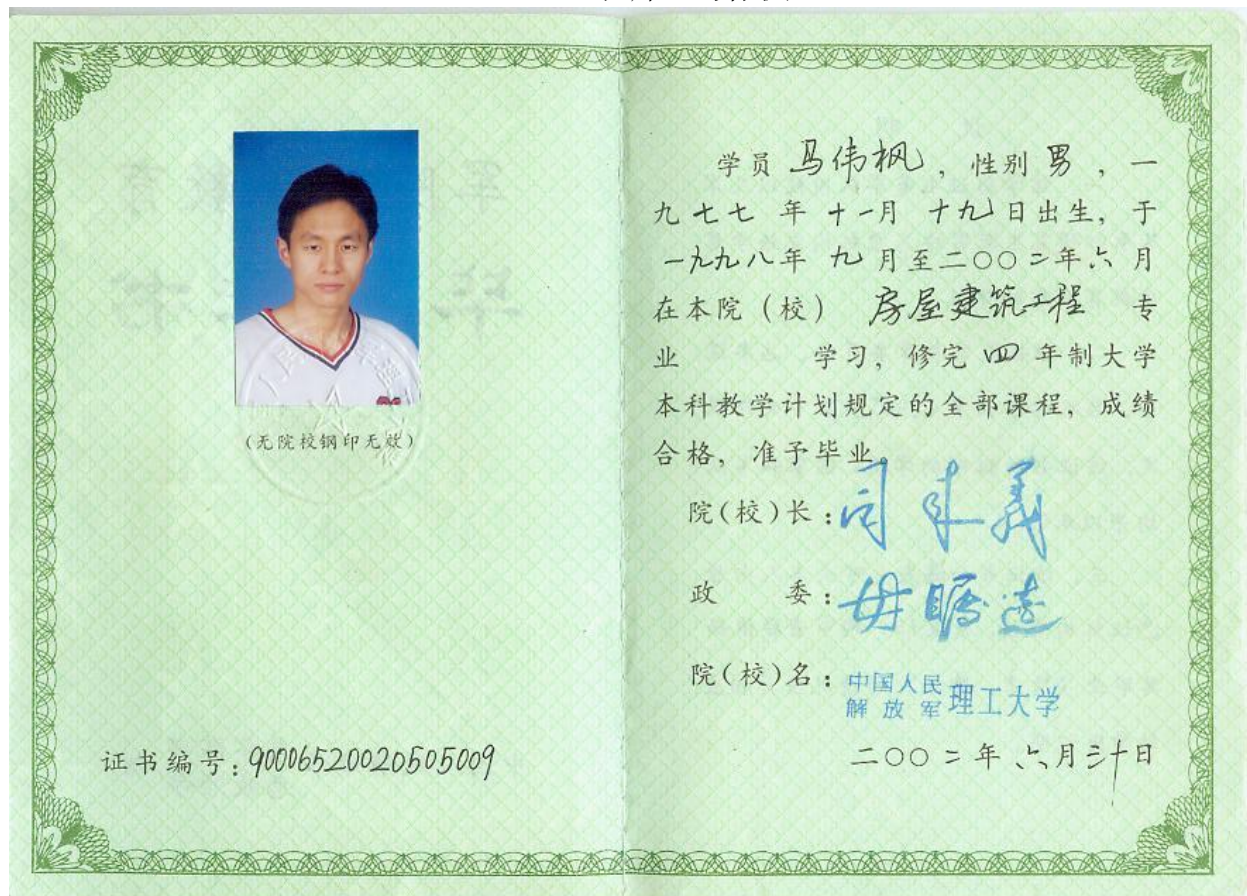 (无院校钢印无效)
证书编号:90006520020505009
学员 马伟枫 ,性别 男 ,一
九七七 年 十一月 十九日出生,于
一九九八年 九 月至二〇〇二年六 月
在本院(校) 房屋建筑工程 专
业 学习,修完 四 年制大学
本科教学计划规定的全部课程,成绩
合格,准予毕业。
院(校)长:司来义
政 委:毋瞩远
院(校)名:中国人民解放军理工大学
二〇〇二年 六月三十日